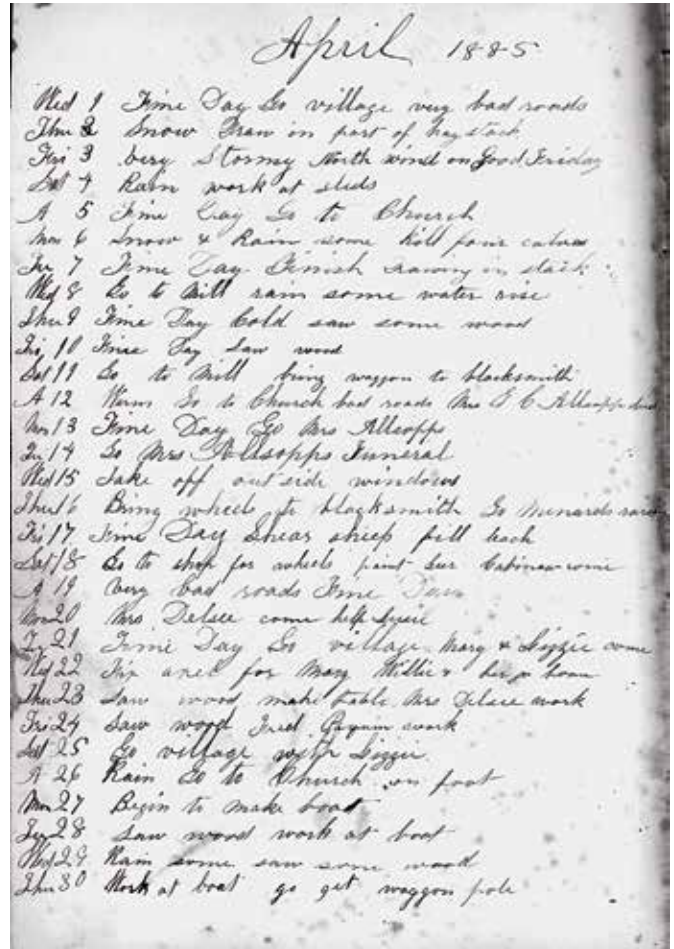 April 1885
Wed 1 Fine Day Go village very bad roads
Thu 2 Snow Draw in part of hay stack
Fri 3 Very Stormy North wind on Good Friday
Sat 4 Rain work at sleds
A 5 Fine Day Go to Church
Mon 6 Snow & Rain some Kill four calves
Tu 7 Fine Day Finish drawing in stack
Wed 8 Go to Mill rain some water rise
Thu 9 Fine Day Cold saw some wood
Fri 10 Fine Day Saw wood
Sat 11 Go to Mill bring waggon to blacksmith
A 12 Warm Go to Church bad roads Mrs G C Allsopp died
Mon 13 Fine Day Go Mrs Allsopps
Tu 14 Go Mrs Allsopps Funeral
Wed 15 Take off outside windows
Thu 16 Bring wheels to blacksmith Go Menards
Fri 17 Fine Day Shear sheep
Sat 18 Go to shop for wheels paint
A 19 Very bad roads Fine Day
Mon 20 Mrs Delsee come help
Tu 21 Fine Day Go village Mary & Lizzie come
Wed 22 Fix for Mary Willie &
Thu 23 Saw wood make table Mrs Delsee work
Fri 24 Saw wood Fred work
Sat 25 Go village with Lizzie
A 26 Rain Go to Church on foot
Mon 27 Begin to make boat
Tu 28 Saw wood work at boat
Wed 29 Rain some saw some wood
Thu 30 Work at boat go get waggon pole